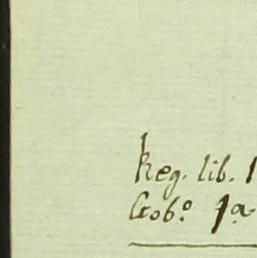 Reg. lib. 1
Gob.º 1a